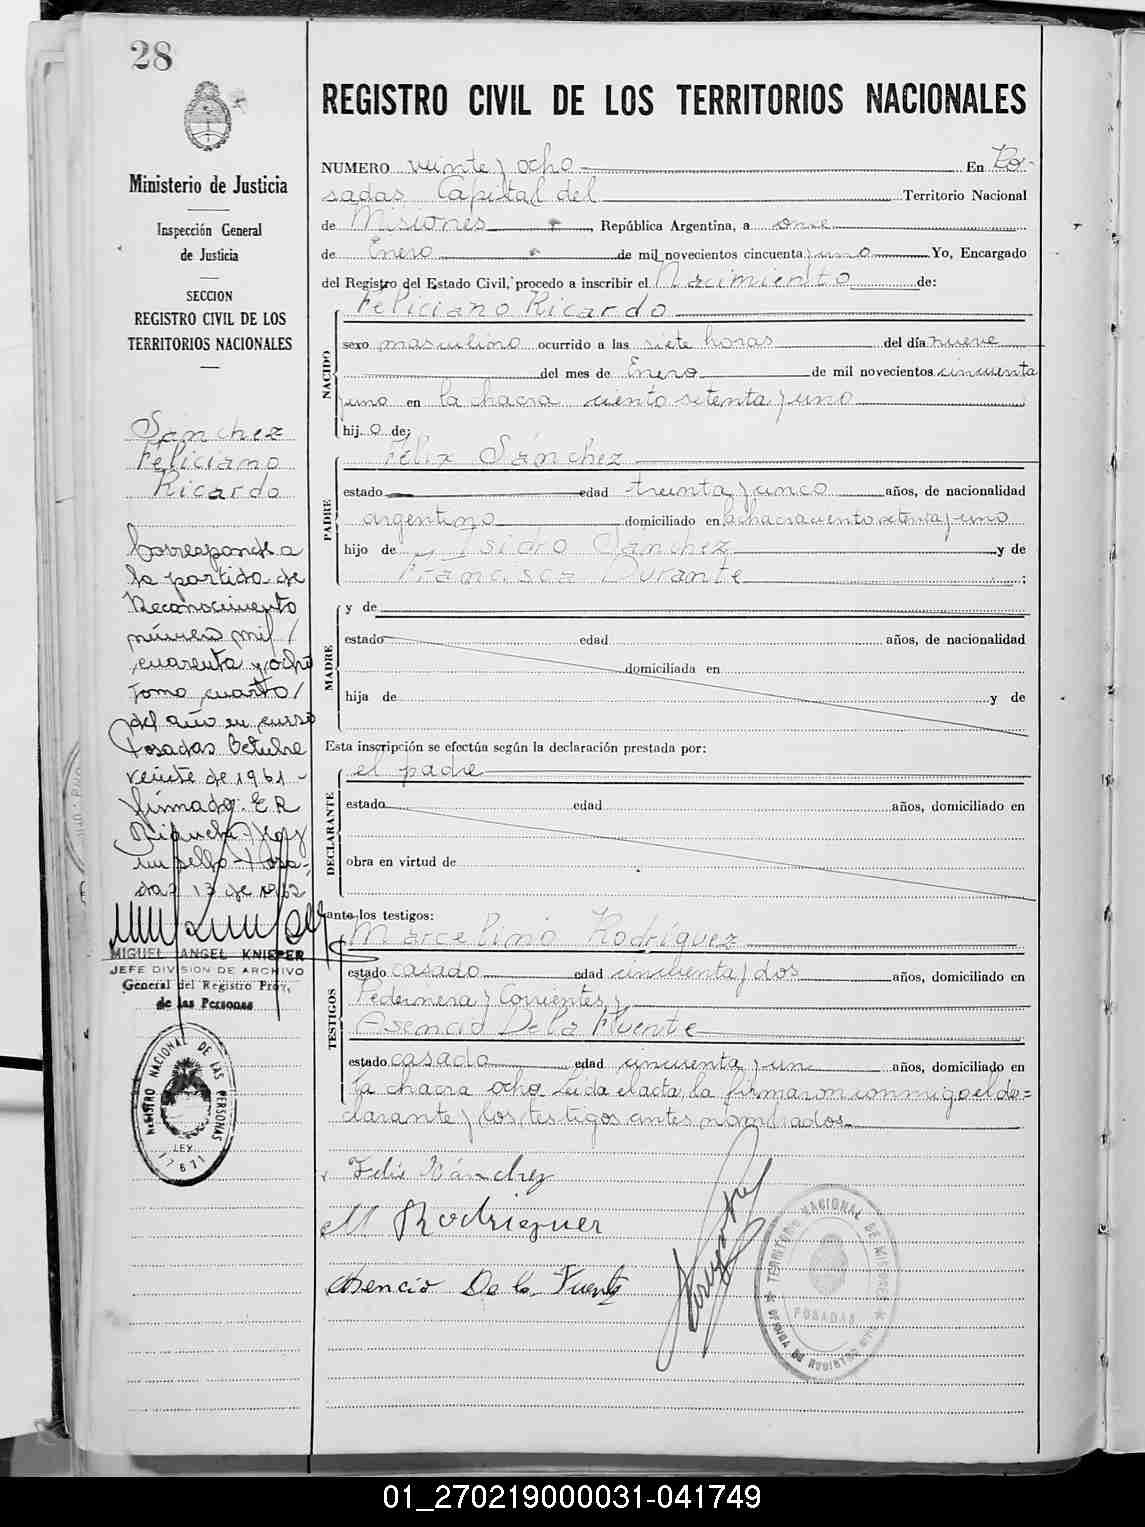 28
Ministerio de Justicia
Inspección General
de Justicia
SECCION
REGISTRO CIVIL DE LOS
TERRITORIOS NACIONALES
Sánchez
Feliciano
Ricardo
Corresponde a
la partida de
Reconocimiento
número mil /
cuarenta y ocho
tomo cuarto /
del año en curso
Posadas Octubre
veinte de 1961 -
firmado: E.R
un sello - Posa-
das 13 de 1962
MIGUEL ANGEL KNIEPER
JEFE DIVISION DE ARCHIVO
General del Registro Prov.
de las Personas
REGISTRO NACIONAL DE LAS PERSONAS
LEY
17671
REGISTRO CIVIL DE LOS TERRITORIOS NACIONALES
NUMERO veinte y ocho En Po-
sadas Capital del Territorio Nacional
de Misiones, República Argentina, a once
de Enero de mil novecientos cincuenta y uno Yo, Encargado
del Registro del Estado Civil, procedo a inscribir el Nacimiento de:
NACIDO
Feliciano Ricardo
sexo masculino ocurrido a las siete horas del día nueve
del mes de Enero de mil novecientos cincuenta
y uno en la chacra ciento setenta y uno
hij o de:
PADRE
Félix Sánchez
estado edad treinta y cinco años, de nacionalidad
argentino domiciliado en la chacra ciento setenta y uno
hijo de Isidro Sánchez y de
Francisca Durante ;
MADRE
y de
estado edad años, de nacionalidad
domiciliada en
hija de y de
Esta inscripción se efectúa según la declaración prestada por:
DECLARANTE
el padre
estado edad años, domiciliado en
obra en virtud de
ante los testigos:
TESTIGOS
Marcelino Rodríguez
estado casado edad cincuenta y dos años, domiciliado en
Pedernera y Corrientes y
Asencio De la Fuente
estado casado edad cincuenta y un años, domiciliado en
la chacra ocho. Leida el acta, la firmaron conmigo el de=
clarante y los testigos antes nombrados.
Felix Sánchez
M Rodriguez
Asencio De la Fuente
TERRITORIO NACIONAL DE MISIONES
POSADAS
01_270219000031-041749